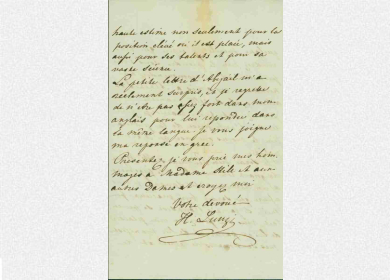 haute estime non seulement pour la
position élevé où il est placé, mais
aussi pour ses talents et pour sa
vaste
La petite lettre d'Abigail m'a
réelement surpris, et je regrette
de n'être pas assez fort dans mon
anglais pour lui repondre dans
la même langue. Je vous joigne
ma reponse en grec.
Presentez, je vous prie mes hom-
mages à Madame Hill et aux
autres Dames et croyez moi
Votre dévoué
H.